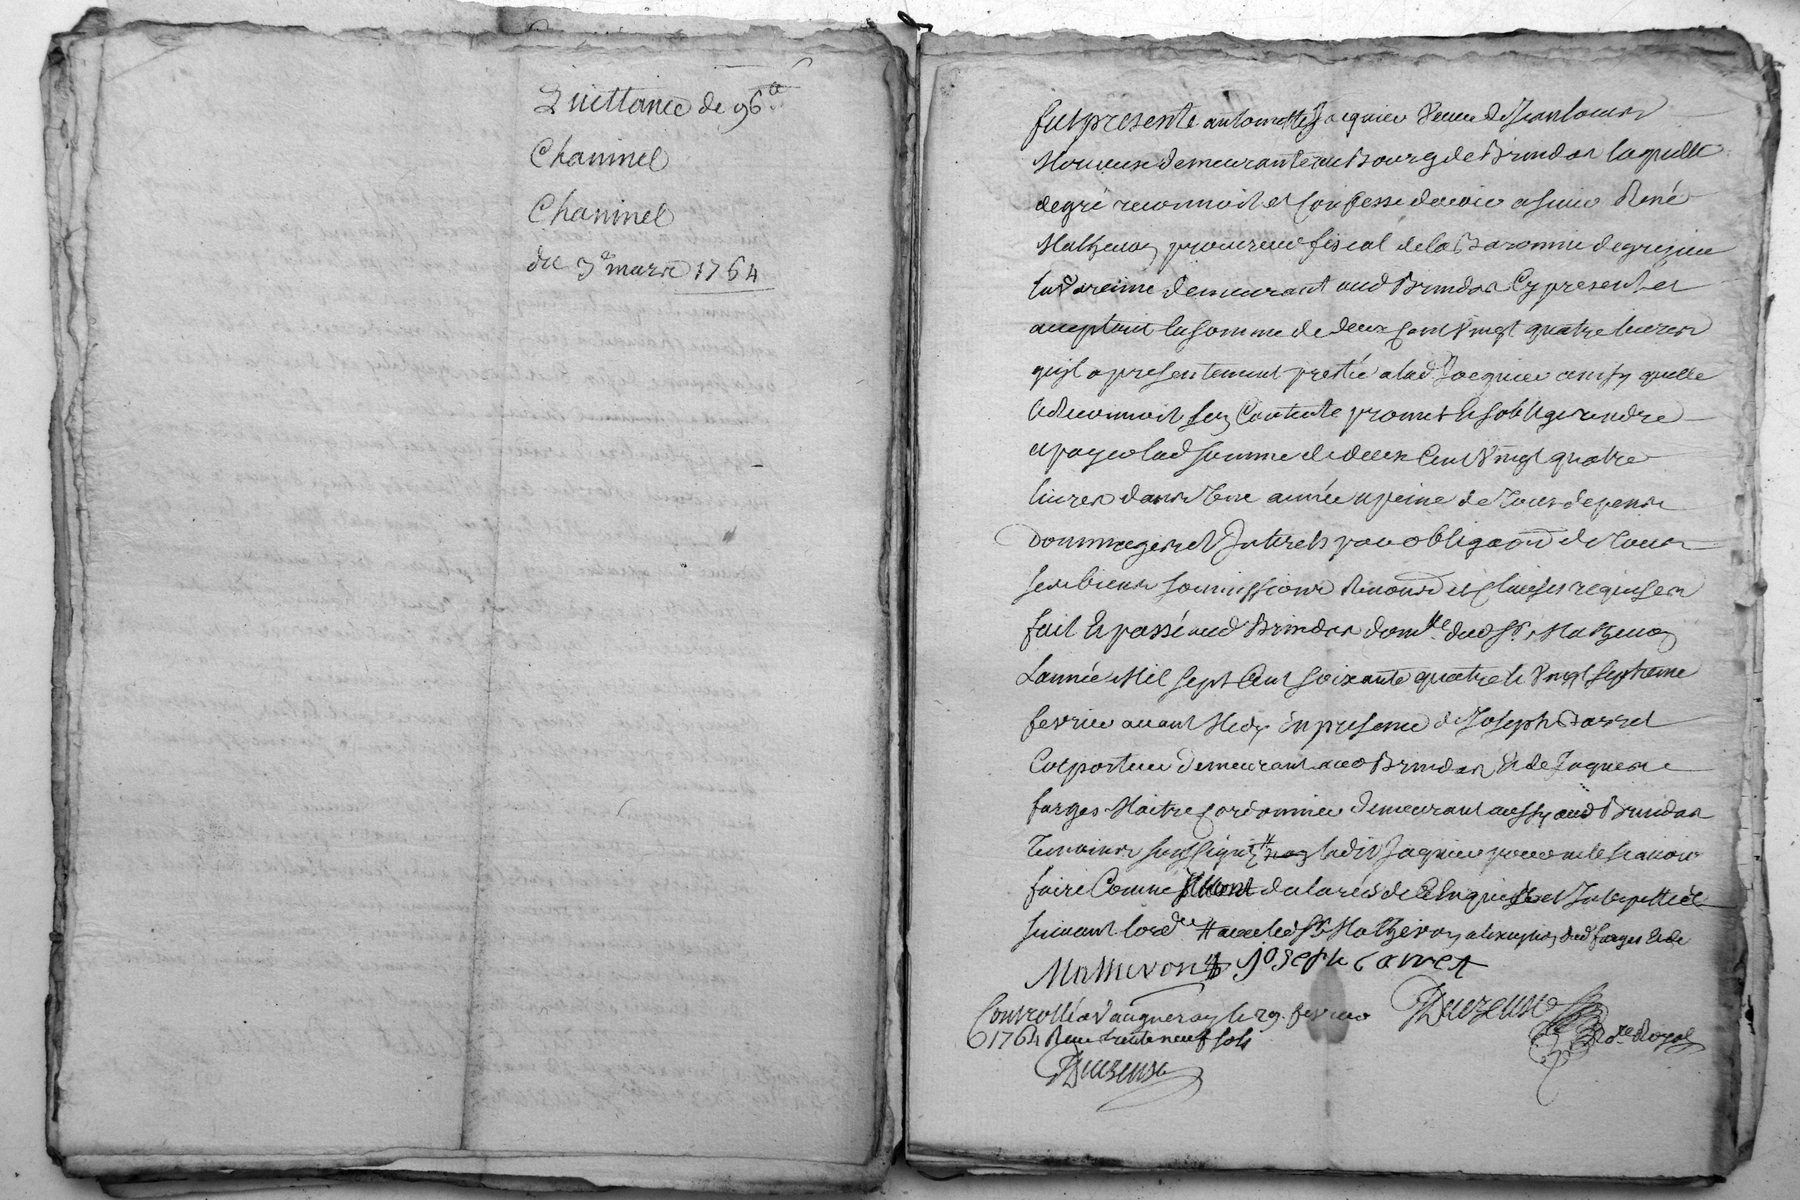 Quittance de 96 ll
Chaninel
Chaninel
du 3e mars 1764
fut presente antoinette Jacquier Veuve de Jean louis
demeurante au Bourg de Brindas laquelle
de gré reconnoit et Confesse devoir a sieur René
Mathevon procureur fiscal de la Baronnie de grezieu
la Vareinne demeurant aud Brindas Cy present et
acceptant la somme de deux Cent Vingt quatre livres
qu'il a presentement presté a lad Jacquier ainsy quelle
le Reconnoit sen Contente promet et soblige rendre
et payer lad somme de deux Cent Vingt quatre
livres dans Une année a peine de Tous depens
Dommages et Interets par obligaōn de Tous
ses biens soumissions Renonōn et Clauses requises
fait Et passé aud Brindas domlle dud Sr Mathevon
L'année Mil sept Cent soixante quatre le Vingt septieme
fevrier avant Midy En presence de Joseph Barret
Colporteur demeurant aud Brindas Et de Jaques
farges Maitre Cordonnier demeurant aussy aud Brindas
Temoins soussignés # ladte Jaquier pour ne le scavoir
faire Comme declaré de Enquis et Interpellés
suivant lordce # avec led Sr Mathevon a lexception dud farges Et de
Mathevon joseph barret
Controllé a Vaugneray le 29. fevrier
1764 Reçu trente neuf sols
Nore Royal